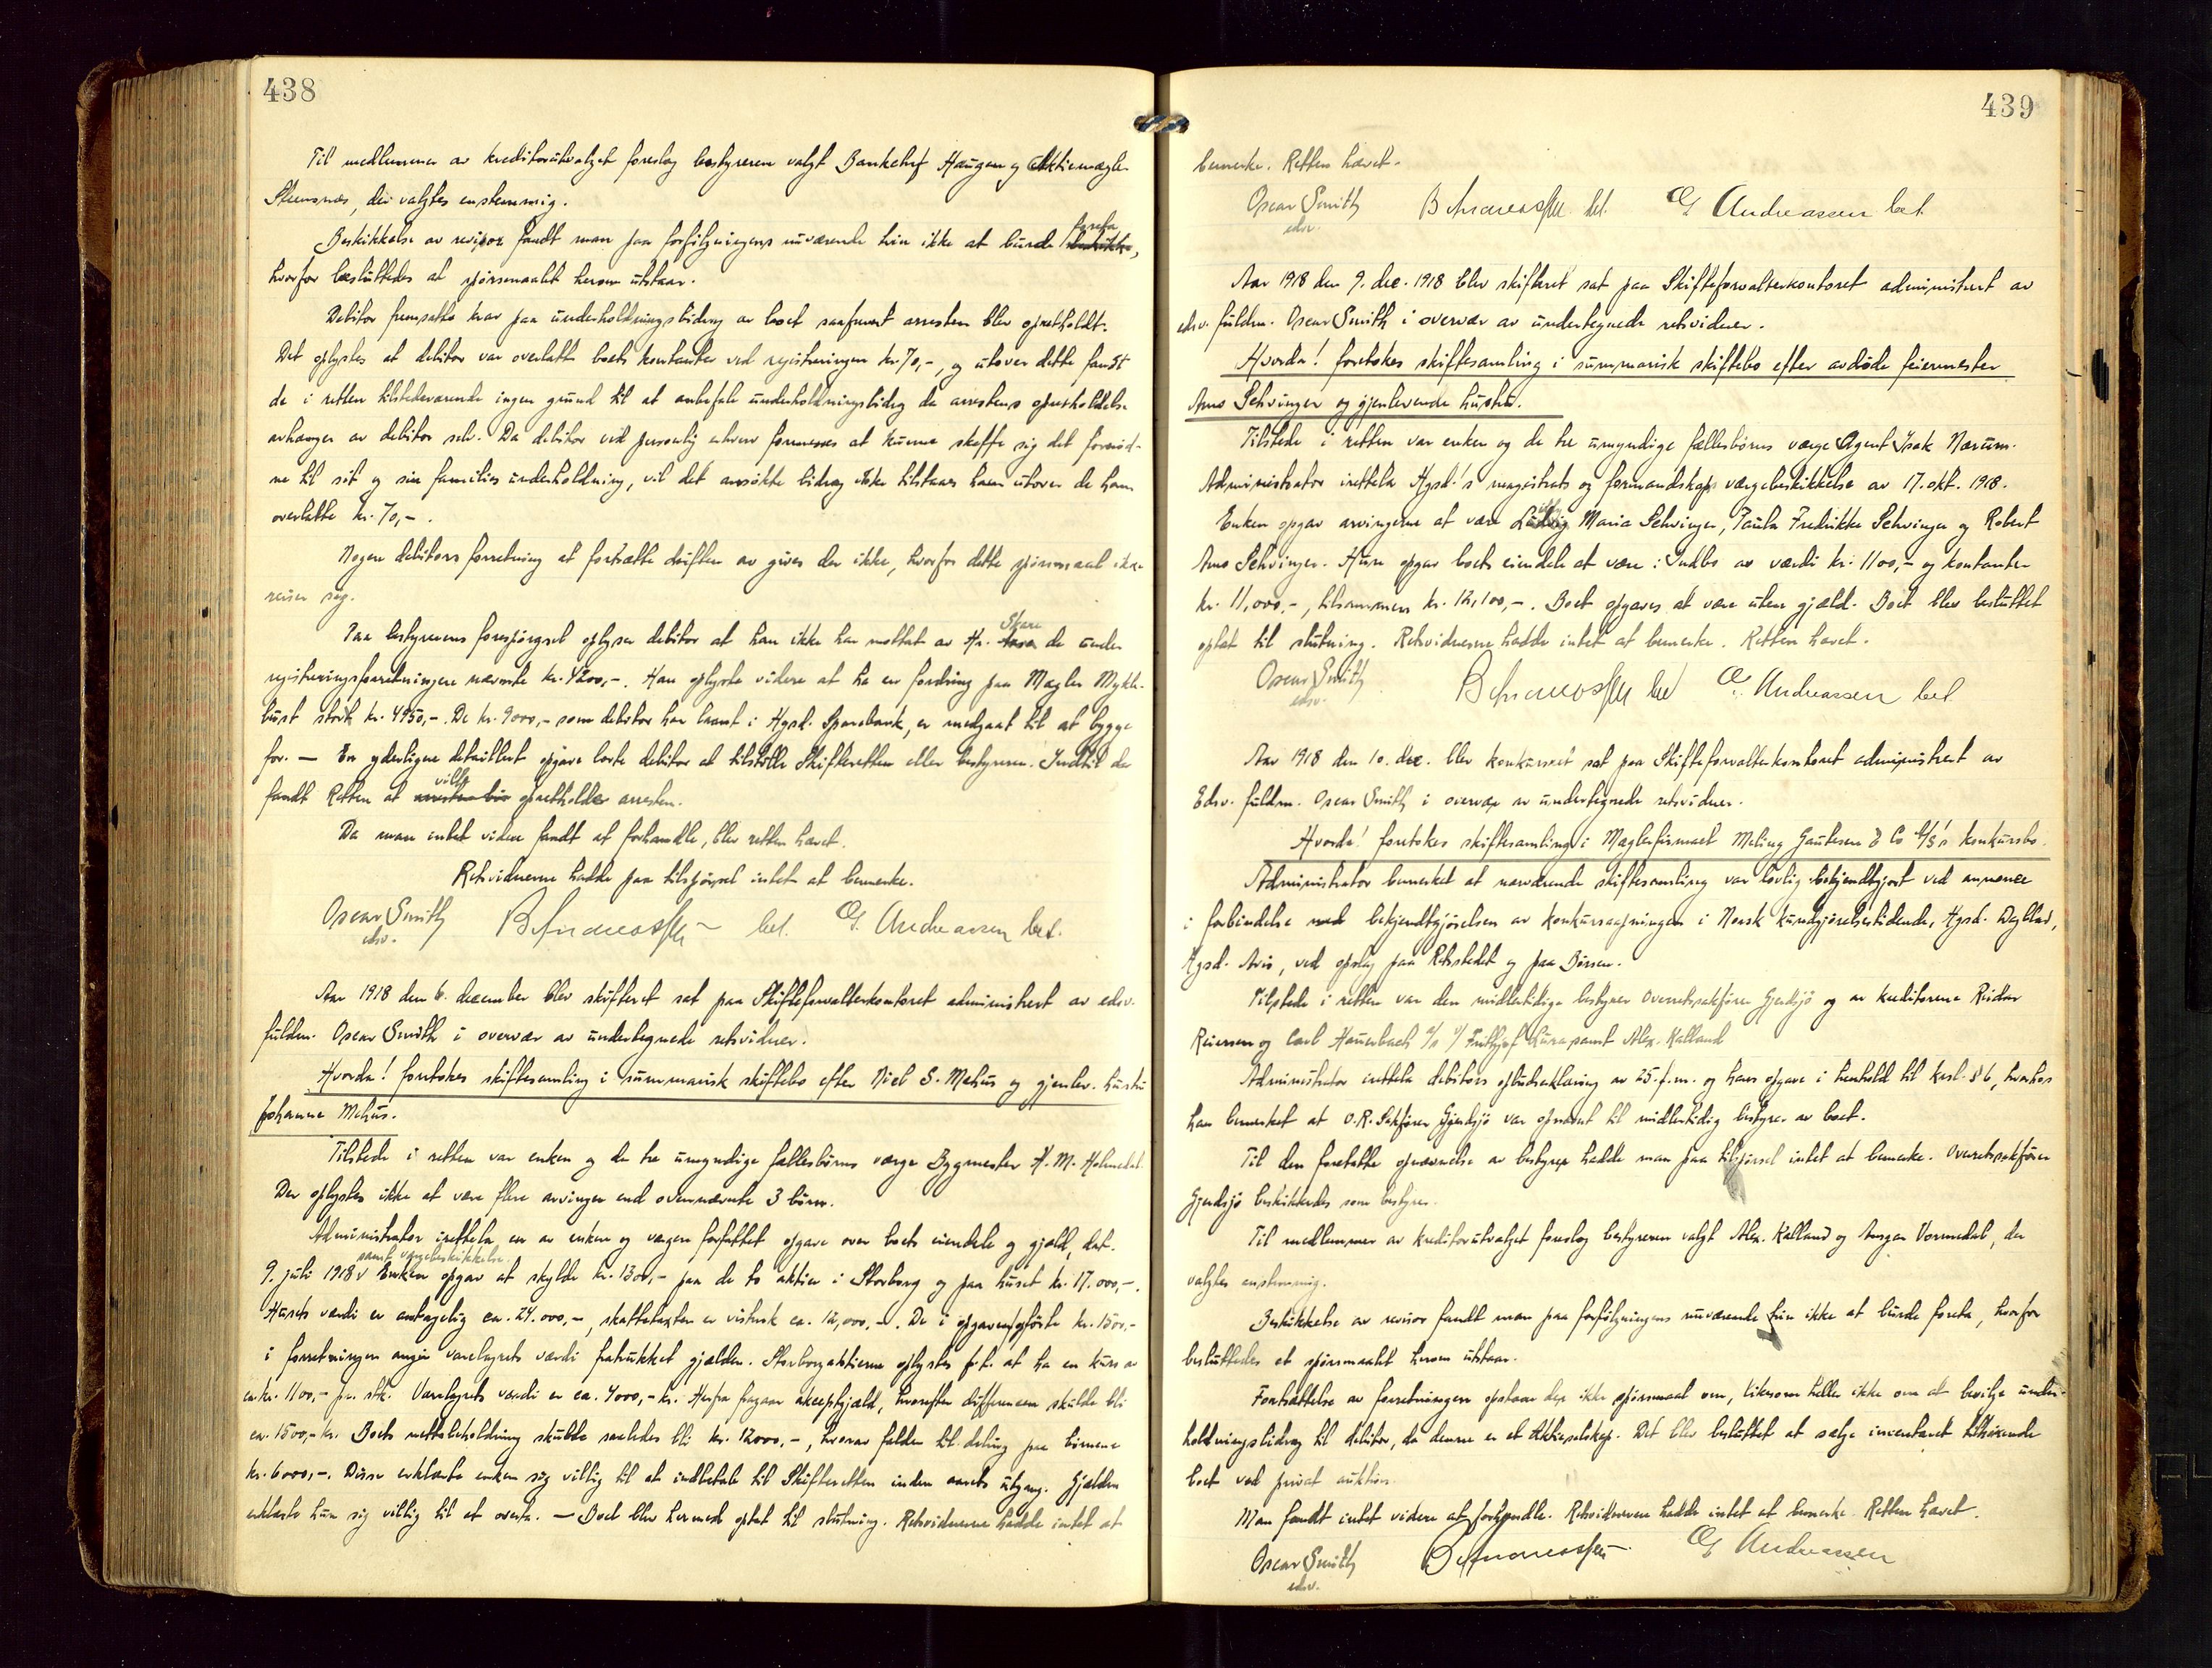 438
Til medlemmer av kreditorutvalget foreslog bestyreren valgt Bankchef Haugen og Aktiemægler
Steensnæs, der valgtes enstemmig.
foreta
Beskikkelse av revisor fandt man paa forfølgningens nuværende trin ikke at burde beskikke,
hvorfor besluttedes at spørsmaalet herom utstaar.
Debitor fremsatte krav paa underholdningsbidrag av boet saafremt arresten blev opretholdt.
Det oplystes at debitor var overlatt boets kontanter ved registreringen kr. 70,-, og utover dette fandt
de i retten tilstedeværende ingen grund til at anbefale underholdningsbidrag da arrestens opretholdelse
avhænger av debitor selv. Da debitor ved personlig erhverv formenes at kunne skaffe sig det fornød-
ne til sit og sin families underholdning, vil det ansøkte bidrag ikke tilstaaes ham utover de ham
overlatte kr. 70,-.
Nogen debitors forretning at fortsætte driften av gives der ikke, hvorfor dette spørsmaal ikke
reiser sig.
Skare
Paa bestyrerens forespørgsel oplyser debitor at han ikke har mottat av Hr. de under
registreringsforretningen nævnte kr. 4200,-. Han oplyste videre at ha en fordring paa Mægler Mykle-
bust stork kr. 4950,-. De kr. 9000,- som debitor har laant i Hgsd. Sparebank, er medgaat til at bygge
for. — En yderligere detaillert opgave lovte debitor at tilstille Skifteretten eller bestyreren. Indtil da
vilde
fandt Retten at arresten bør opretholde arresten.
Da man intet videre fandt at forhandle, blev retten hævet.
Retsvidnerne hadde paa tilspørsel intet at bemerke.
Oscar Smith
edsv.
B Andreassen bet. G. Andreassen bet.
Aar 1918 den 6. december blev skifteret sat paa Skifteforvalterkontoret administrert av edsv.
fuldm. Oscar Smith i overvær av undertegnede retsvidner.
Hvorda! foretokes skiftesamling i summarisk skiftebo efter Niel S. Mehus og gjenlev. hustru
Johanne Mehus.
Tilstede i retten var enken og de tre umyndige fællesbørns værge Bygmester H. M. Holmedal.
Der oplystes ikke at være flere arvinger end ovennævnte 3 børn.
Administrator irettela en av enken og værgen forfattet opgave over boets eiendele og gjæld, dat.
samt værgebeskikkelse
9. juli 1918 v Enken opgav at skylde kr. 1300,- paa de to aktier i Storborg og paa huset kr. 17.000,-.
Husets værdi er antagelig ca. 24.000,-, skattetaxten er vistnok ca. 12,000,-. De i opgaven opførte kr. 1500,-
i forretningen angir varelagrets værdi fratrukket gjælden. Storborgaktierne oplystes f.t. at ha en kurs av
ca. kr. 1100,- pr. stk. Varelagrets værdi er ca. 4000,- kr. Herfra fragaar akceptgjæld, hvorefter differencen skulde bli
ca. 1500,- kr. Boets nettobeholdning skulde saaledes bli kr. 12000,-, hvorav falder til deling paa børnene
kr. 6000,-. Disse erklærte enken sig villig til at indbetale til Skifteretten inden aarets utgang. Gjælden
erklærte hun sig villig til at overta. — Boet blev hermed optat til slutning. Retsvidnerne hadde intet at
439
bemerke. Retten hævet.
Oscar Smith
edsv.
B Andreassen bet. G Andreassen bet
Aar 1918 den 9. dec. 1918 blev skifteret sat paa Skifteforvalterkontoret administrert av
edsv. fuldm. Oscar Smith i overvær av undertegnede retsvidner.
Hvorda! foretokes skiftesamling i summarisk skiftebo efter avdøde feiermester
Arno Schwinger og gjenlevende hustru.
Tilstede i retten var enken og de tre umyndige fællesbørns værge Agent Isak Nærum.
Administrator irettela Hgsd.'s magistrats og formandskaps værgebeskikkelse av 17. okt. 1918.
Enken opgav arvingerne at være Maria Schwinger, Paula Fredrikke Schwinger og Robert
Arno Schwinger. Hun opgav boets eiendele at være: Indbo av værdi kr. 1100,- og kontanter
kr. 11,000,-, tilsammen kr. 12,100,-. Boet opgaves at være uten gjæld. Boet blev besluttet
optat til slutning. Retsvidnerne hadde intet at bemerke. Retten hævet.
Oscar Smith
edsv.
B Andreassen bet G. Andreassen bet
Aar 1918 den 10. dec. blev konkursret sat paa Skifteforvalterkontoret administrert av
Edsv. fuldm. Oscar Smith i overvær av undertegnede retsvidner.
Hvorda! foretokes skiftesamling i Mæglerfirmaet Meling Gautesen & Co A/S's konkursbo.
Administrator bemerket at nærværende skiftesamling var lovlig bekjendtgjort ved annonce
i forbindelse med bekjendtgjørelsen av konkursaapningen i Norsk Kundgjørelsestidende, Hgsd. Dagblad,
Hgsd. Avis, ved opslag paa Retsstedet og paa Børsen.
Tilstede i retten var den midlertidige bestyrer Overretssakfører Gjerdsjø og av kreditorene Reidar
Reiersen og Carl Hauerbach Frithjof Lura samt Alex. Kalland
Administrator irettela debitors opbudserklæring av 25. f.m. og hans opgave i henhold til krsl. § 6, hvorhos
han bemerket at O.R. Sakfører Gjerdsjø var opnævnt til midlertidig bestyrer av boet.
Til den foretatte opnævnelse av bestyrer hadde man paa tilspørsel intet at bemerke. Overretssakfører
Gjerdsjø beskikkedes som bestyrer.
Til medlemmer av kreditorutvalget foreslog bestyreren valgt Alex. Kalland og Ansgar Vormedal, der
valgtes enstemmig.
Beskikkelse av revisor fandt man paa forfølgningens nuværende trin ikke at burde foreta, hvorfor
besluttedes at spørsmaalet herom utstaar.
Fortsættelse av forretningen opstaar der ikke spørsmaal om, likesom heller ikke om at bevilge under-
holdningsbidrag til debitor, da denne er et Aktieselskap. Det blev besluttet at sælge inventaret tilhørende
boet ved privat auktion.
Man fandt intet videre at forhandle. Retsvidnerne hadde intet at bemerke. Retten hævet.
Oscar Smith
edsv.
B Andreassen G Andreassen